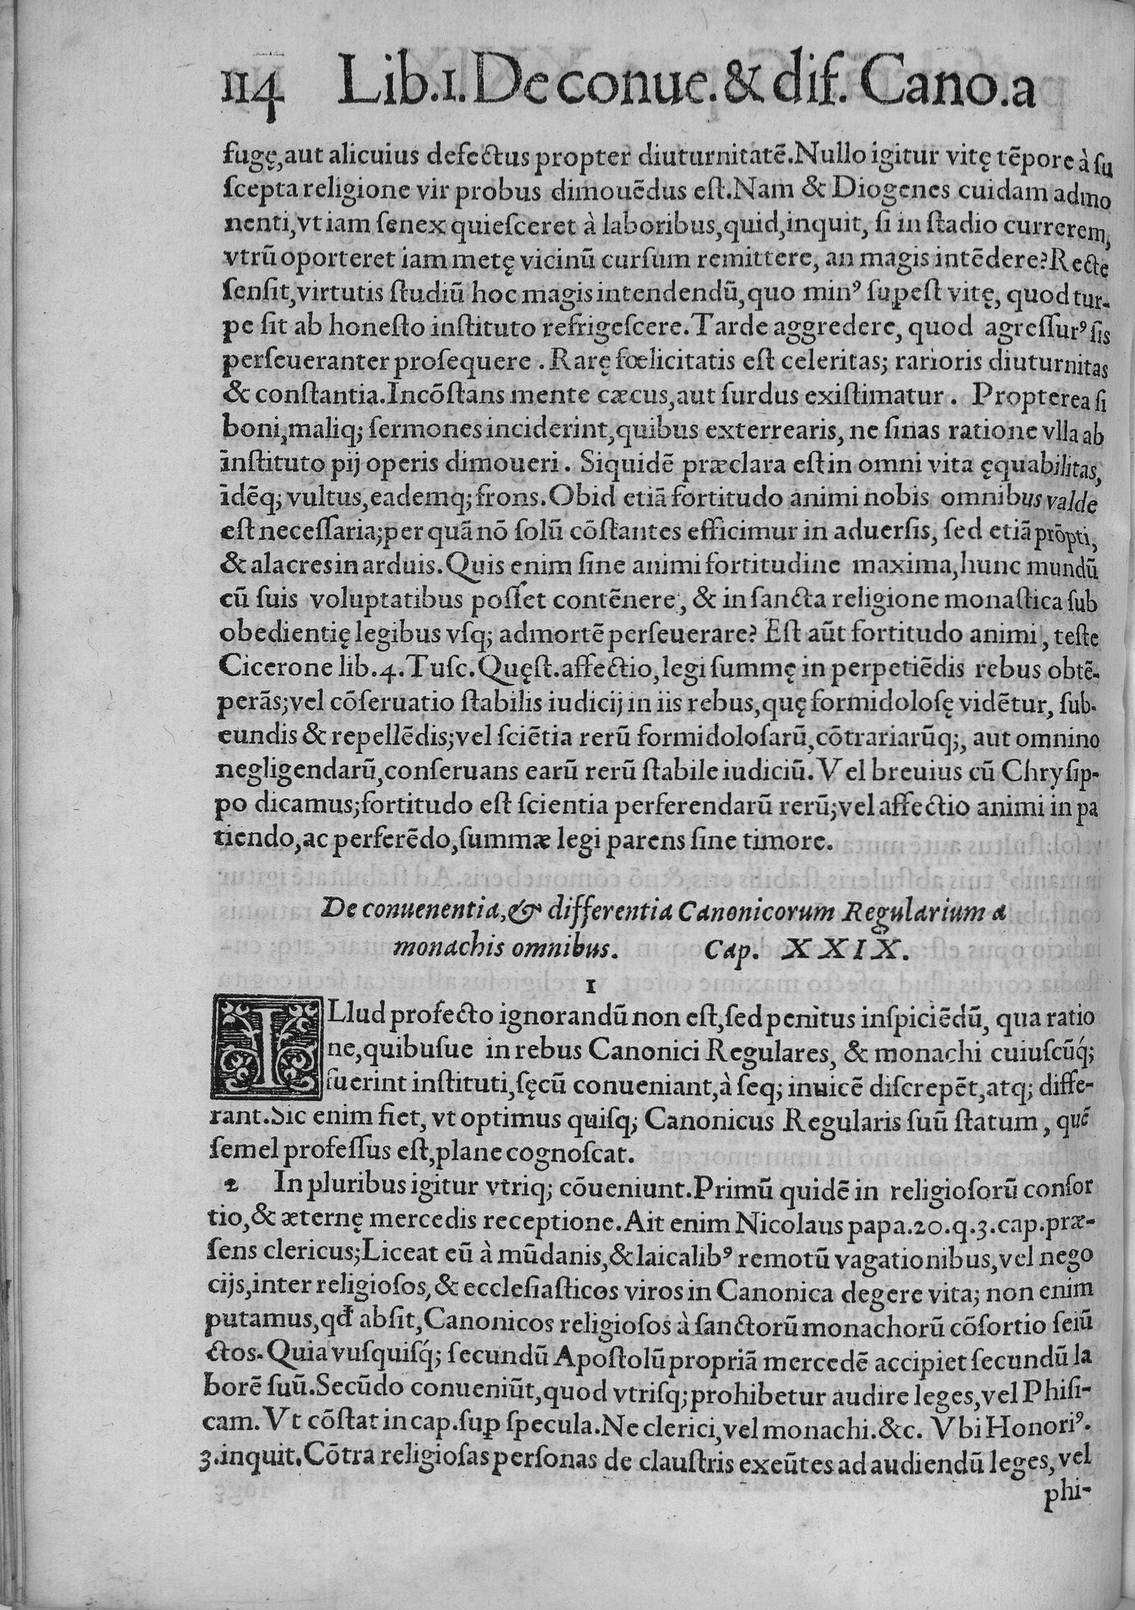 114 Lib.1. De conue. & dif. Cano. a
fugę, aut alicuius defectus propter diuturnitatẽ. Nullo igitur vitę tẽpore à su
scepta religione vir probus dimouẽdus est. Nam & Diogenes cuidam admo
nenti, vt iam senex quiesceret à laboribus, quid, inquit, si in stadio currerem,
vtrũ oporteret iam metę vicinũ cursum remittere, an magis intẽdere? Recte
sensit, virtutis studiũ hoc magis intendendũ, quo minꝰ suꝑest vitę, quod tur-
pe sit ab honesto instituto refrigescere. Tarde aggredere, quod agressurꝰ sis
perseueranter prosequere. Rarę fœlicitatis est celeritas; rarioris diuturnitas
& constantia. Incõstans mente cæcus, aut surdus existimatur. Propterea si
boni, maliq; sermones inciderint, quibus exterrearis, ne sinas ratione vlla ab
instituto pij operis dimoueri. Siquidẽ præclara est in omni vita ęquabilitas,
idẽq; vultus, eademq; frons. Ob id etiã fortitudo animi nobis omnibus valde
est necessaria; per quã nõ solũ cõstantes efficimur in aduersis, sed etiã prõpti,
& alacres in arduis. Quis enim sine animi fortitudine maxima, hunc mundũ
cũ suis voluptatibus posset contẽnere, & in sancta religione monastica sub
obedientię legibus vsq; ad mortẽ perseuerare? Est aũt fortitudo animi, teste
Cicerone lib. 4. Tusc. Quęst. affectio, legi summę in perpetiẽdis rebus obtẽ-
perãs; vel cõseruatio stabilis iudicij in iis rebus, quę formidolosę vidẽtur, sub-
eundis & repellẽdis; vel sciẽtia rerũ formidolosarũ, cõtrariarũq;, aut omnino
negligendarũ, conseruans earũ rerũ stabile iudiciũ. Vel breuius cũ Chrysip-
po dicamus; fortitudo est scientia perferendarũ rerũ; vel affectio animi in pa
tiendo, ac perferẽdo, summæ legi parens sine timore.
De conuenentia, & differentia Canonicorum Regularium a
monachis omnibus. Cap. XXIX.
1
ILlud profecto ignorandũ non est, sed penitus inspiciẽdũ, qua ratio
ne, quibusue in rebus Canonici Regulares, & monachi cuiuscũq́;
fuerint instituti, sęcũ conueniant, à seq; inuicẽ discrepẽt, atq; diffe-
rant. Sic enim fiet, vt optimus quisq; Canonicus Regularis suũ statum, quẽ
semel professus est, plane cognoscat.
2 In pluribus igitur vtriq; cõueniunt. Primũ quidẽ in religiosorũ consor
tio, & æternę mercedis receptione. Ait enim Nicolaus papa. 20. q. 3. cap. præ-
sens clericus; Liceat eũ à mũdanis, & laicalibꝰ remotũ vagationibus, vel nego
cijs, inter religiosos, & ecclesiasticos viros in Canonica degere vita; non enim
putamus, qđ absit, Canonicos religiosos à sanctorũ monachorũ cõsortio seiũ
ctos. Quia vusquisq́; secundũ Apostolũ propriã mercedẽ accipiet secundũ la
borẽ suũ. Secũdo conueniũt, quod vtrisq; prohibetur audire leges, vel Phisi-
cam. Vt cõstat in cap. suꝑ specula. Ne clerici, vel monachi. &c. Vbi Honoriꝰ.
3. inquit. Cõtra religiosas personas de claustris exeũtes ad audiendũ leges, vel
phi-